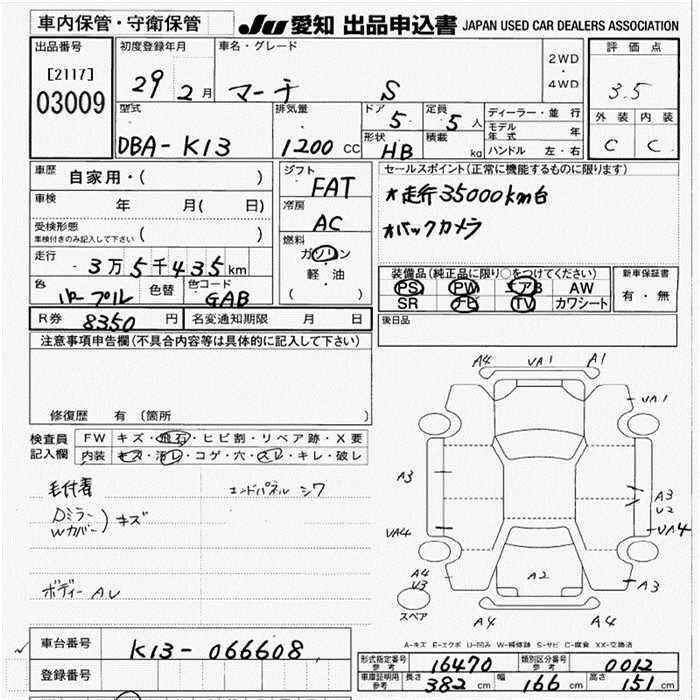 車内保管・守衛保管 JU 愛知 出品申込書 JAPAN USED CAR DEALERS ASSOCIATION
出品番号 初度登録年月 車名・グレード 2WD・4WD 評価点
[2117] 29 2月 マーチ S 3.5
03009
型式 排気量 ドア 5 定員 5人 ディーラー・並行 外装 内装
DBA-K13 1200cc 形状 HB 積載 kg モデル年式 年 C C
ハンドル 左・右
車歴 自家用・( ) シフト FAT セールスポイント(正常に機能するものに限ります)
車検 年 月( 日) 冷房 AC *走行35000km台
受検形態 *バックカメラ
車検付きのみ記入して下さい ( ) 燃料
走行 3万5千435km ガソリン 装備品(純正品に限り○をつけてください) 新車保証書
軽・油 PS PW エアB AW 有・無
色 パープル 色替 色コード GAB ( ) SR ナビ TV カワシート
R券 8350円 名変通知期限 月 日 後日品
注意事項申告欄(不具合内容等は具体的に記入して下さい)
修復歴 有 (箇所 )
A4 VA1 A1
VA1
検査員 FW キズ・飛石・ヒビ割・リペア跡・X要
記入欄 内装 キズ・汚レ・コゲ・穴・スレ・キレ・破レ
A3
毛付着 エンドパネル シワ
A3
U2
Dミラー
Wカバー )キズ
VA4 VA4
A4
A2
A3
ボディー
スペア
A4 A4
A-キズ E-エクボ U-凹み W-補修跡 S-サビ C-腐食 XX-交換済
車台番号 K13-066608
形式指定番号 参考 16470 類別区分番号 参考 0012
登録番号
車庫証明用 参考 長さ 382cm 幅 166cm 高さ 151cm